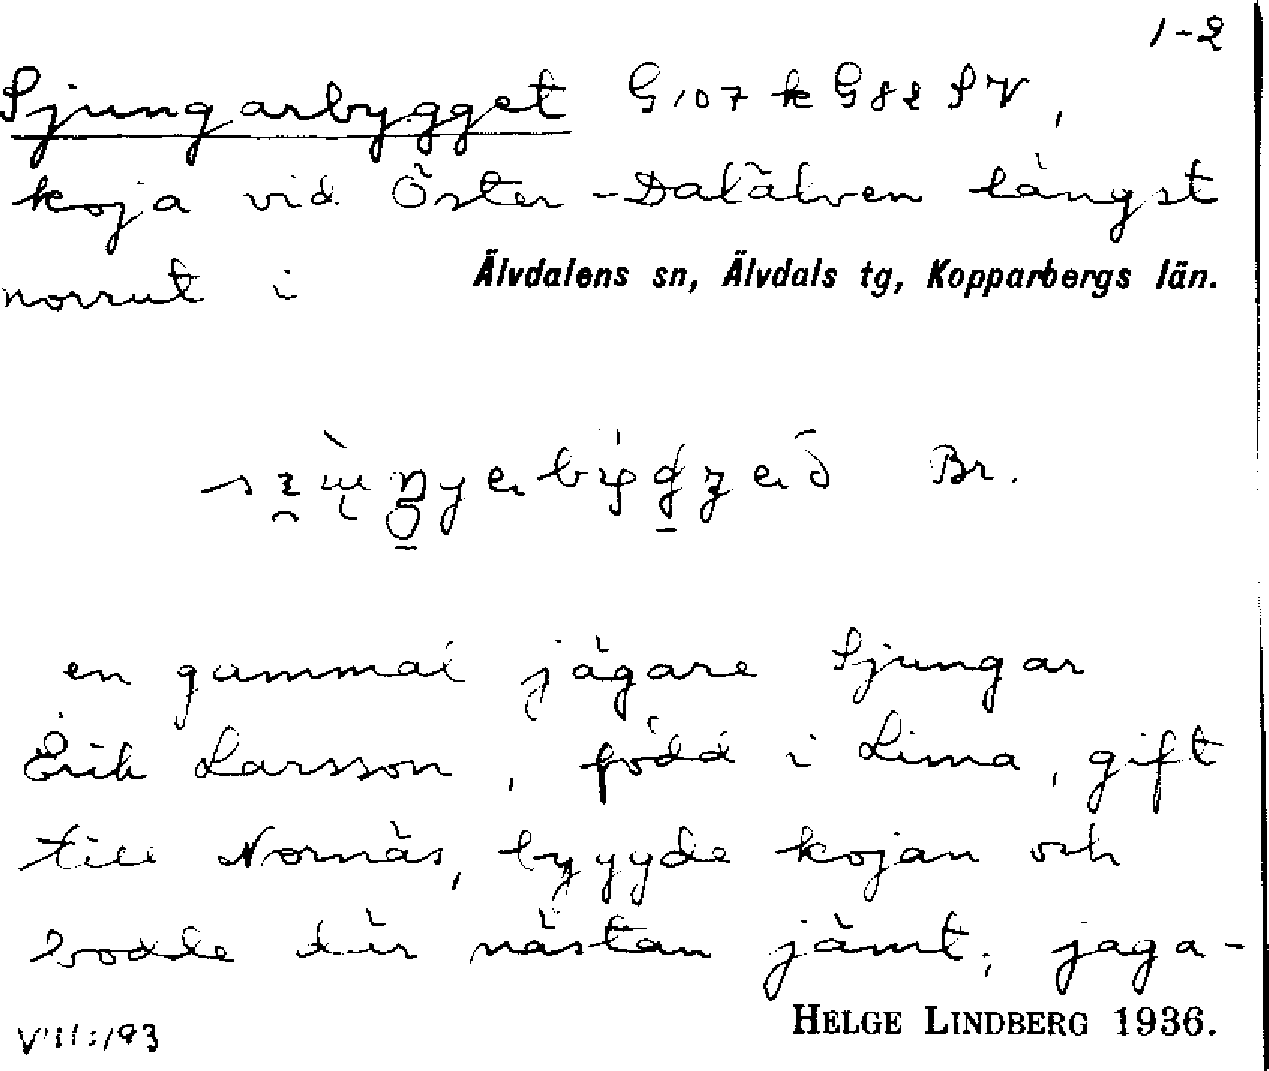 1-2
Sjungarbygget G107 k G82 SV,
koja vid Öster-Dalälven längst
norrut i Älvdalens sn, Älvdals tg, Kopparbergs län.
Br.
en gammal jägare Sjungar
Erik Larsson, född i Lima, gift
till Nornäs, byggde kojan och
bodde där nästan jämt, jaga-
VIII:193 HELGE LINDBERG 1936.